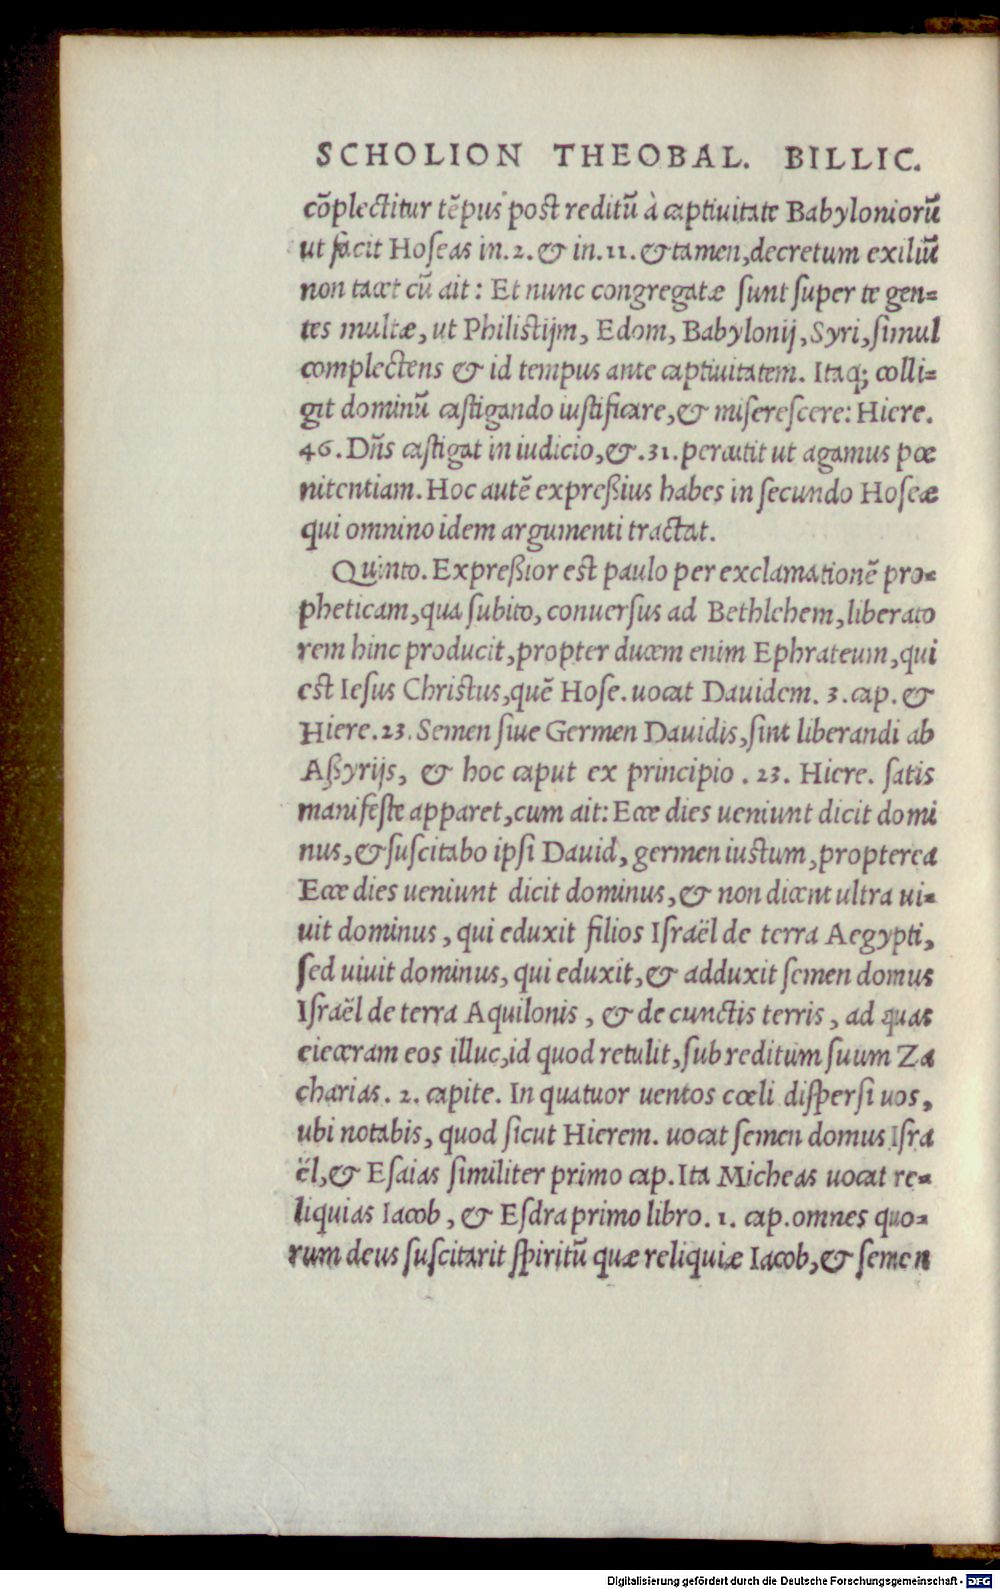 SCHOLION THEOBAL. BILLIC.
cōplectitur tēpus post reditū à captiuitate Babyloniorū
ut facit Hoſeas in.2.& in.11.& tamen,decretum exiliū
non tacet cū ait: Et nunc congregatæ ſunt ſuper te gen=
tes multæ, ut Philistijm, Edom, Babylonij, Syri,ſimul
complectens & id tempus ante captiuitatem. Itaq; colli=
git dominū caſtigando iuſtificare,& miſereſcere: Hiere.
46. Dn̄s caſtigat in iudicio,&.31.percutit ut agamus pœ
nitentiam. Hoc autē expreßius habes in ſecundo Hoſeæ
qui omnino idem argumenti tractat.
Quinto. Expreßior est paulo per exclamationē pro=
pheticam,qua ſubito, conuerſus ad Bethlehem,liberato
rem hinc producit,propter ducem enim Ephrateum,qui
est Ieſus Christus,quē Hoſe. uocat Dauidem. 3.cap. &
Hiere.23. Semen ſiue Germen Dauidis,ſint liberandi ab
Aßyrijs, & hoc caput ex principio .23. Hiere. ſatis
manifeſte apparet,cum ait: Ecce dies ueniunt dicit domi
nus,& ſuſcitabo ipſi Dauid, germen iustum,propterea
Ecce dies ueniunt dicit dominus,& non dicent ultra ui=
uit dominus, qui eduxit filios Iſraël de terra Aegypti,
ſed uiuit dominus, qui eduxit,& adduxit ſemen domus
Iſraël de terra Aquilonis, & de cunctis terris, ad quas
eieceram eos illuc,id quod retulit,ſub reditum ſuum Za
charias. 2. capite. In quatuor uentos cœli diſperſi uos,
ubi notabis, quod ſicut Hierem. uocat ſemen domus Iſra
ël,& Eſaias ſimiliter primo cap. Ita Micheas uocat re=
liquias Iacob, & Eſdra primo libro. 1. cap. omnes quo=
rum deus ſuſcitarit ſpiritū quæ reliquiæ Iacob,& ſemen
Digitalisierung gefördert durch die Deutsche Forschungsgemeinschaft - DFG